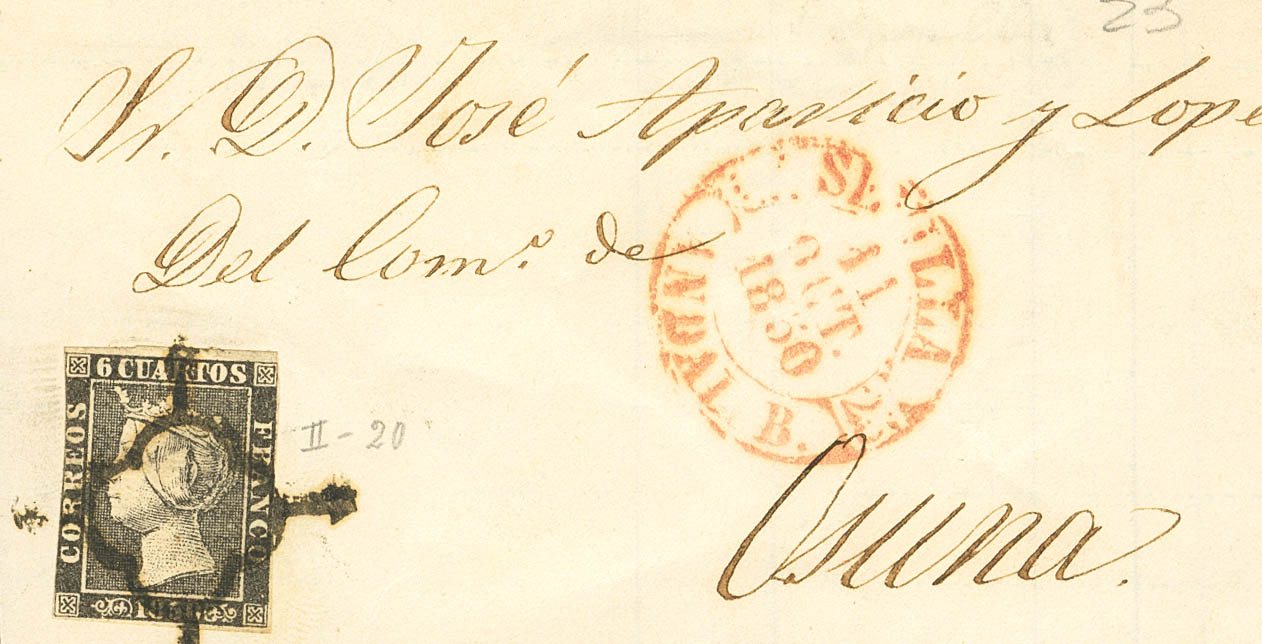 23
Sr. D. José Aparicio y Lope
Del Com.º de
SEVILLA
ANDAL. B.
11
OCT.
1850
6 CUARTOS
CORREOS
FRANCO
II - 20
Osuna.
1850